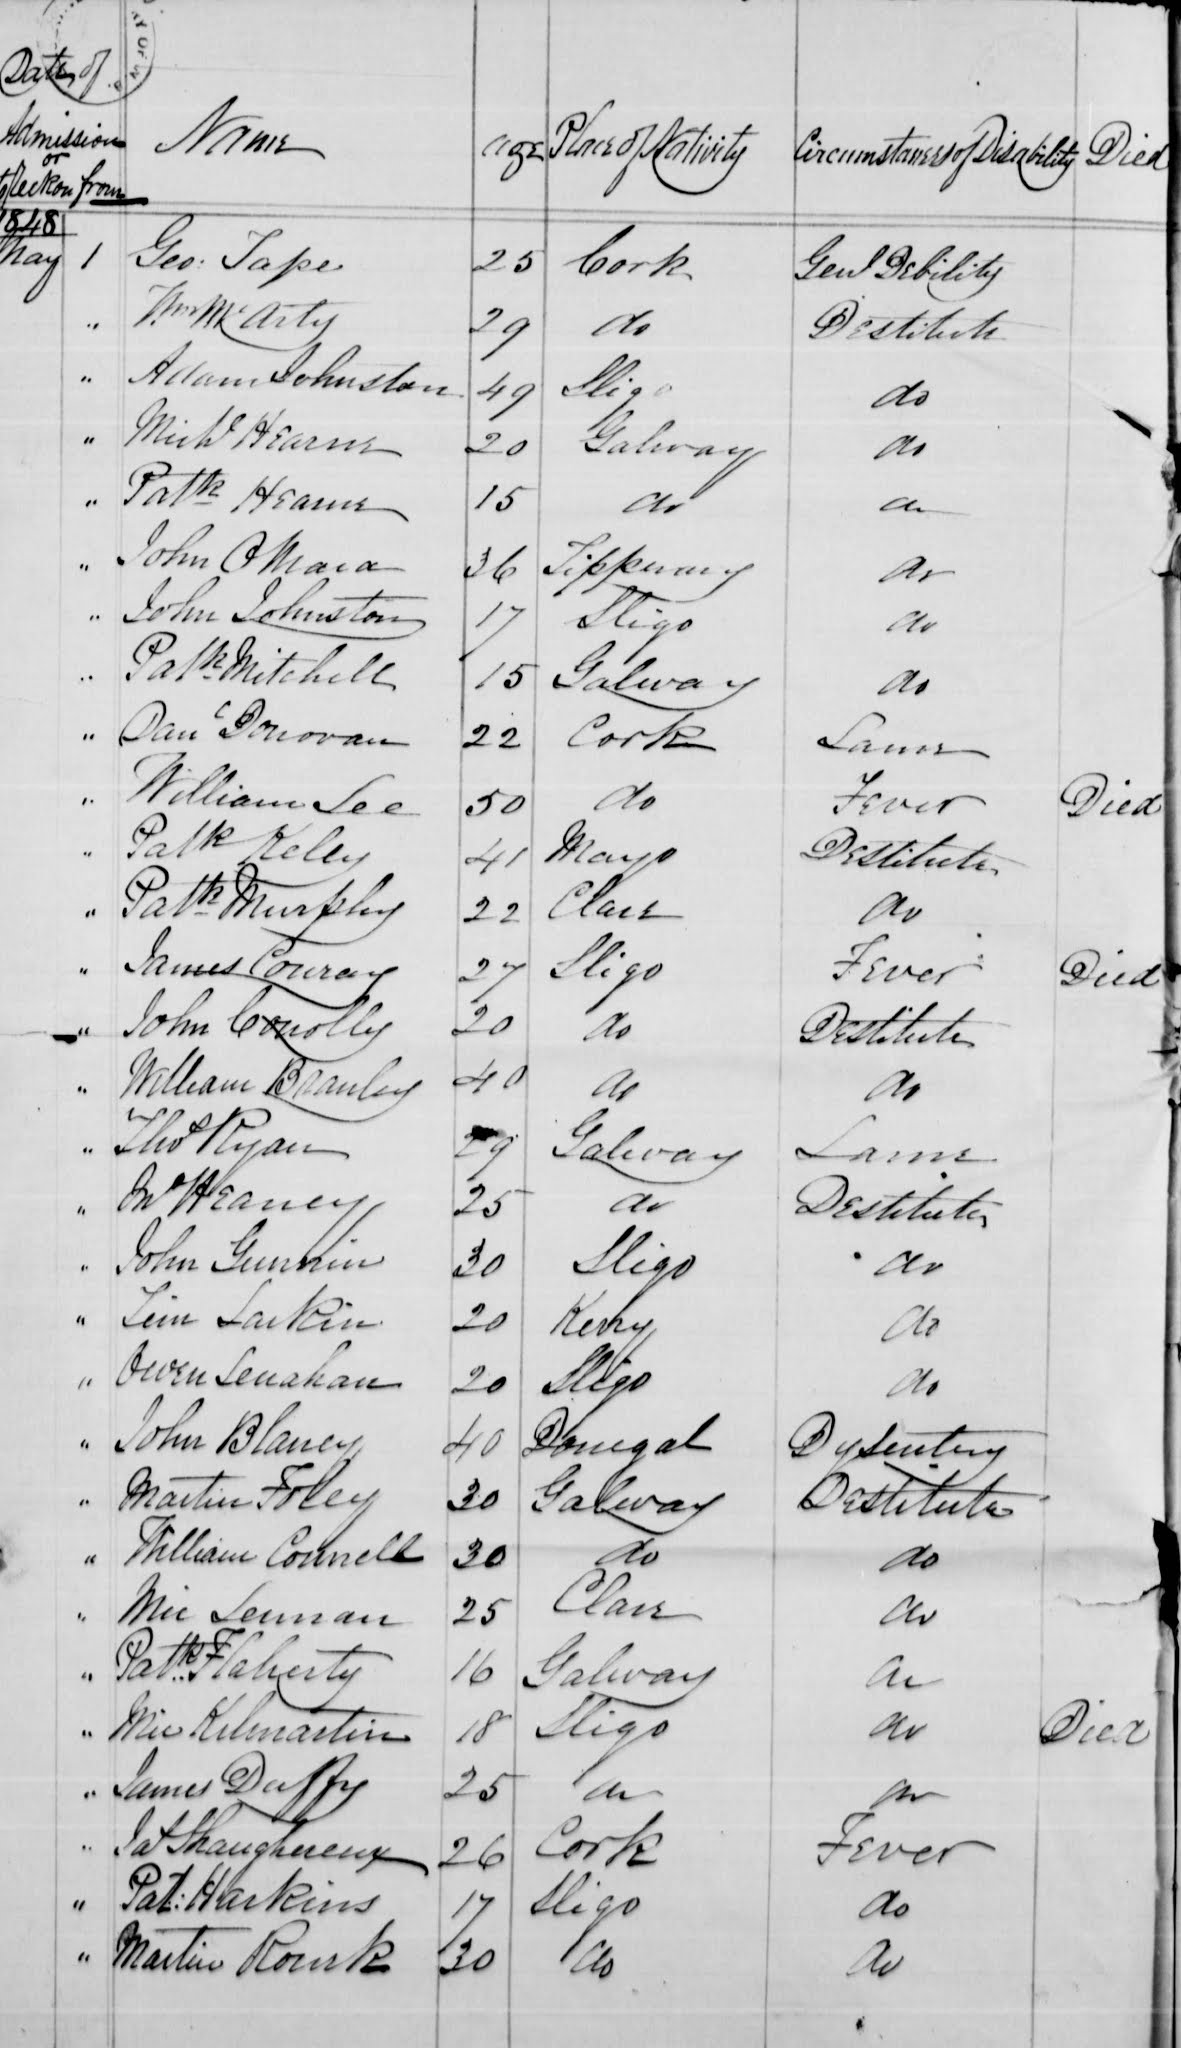 Date of Admission or to Reckon from Name age Place of Nativity Circumstances of Disability Died
1848
May 1 Geo: Tape 25 Cork Genl Debility
" Wm McArty 29 do Destitute
" Adam Johnston 49 Sligo do
" Michl Hearne 20 Galway do
" Patk Hearne 15 do do
" John OMara 36 Tipperary do
" John Johnston 17 Sligo do
" Patk Mitchell 15 Galway do
" Danl Donovan 22 Cork Lame
" William Lee 50 do Fever Died
" Patk Keley 41 Mayo Destitute
" Patk Murphy 22 Clare do
" James Conray 27 Sligo Fever Died
" John Conolly 20 do Destitute
" William Branley 40 do do
" Thos Ryan 29 Galway Lame
" Heaney 25 do Destitute
" John Gunnin 30 Sligo do
" Tim Larkin 20 Kerry do
" Owen Lenahan 20 Sligo do
" John Blaney 40 Donegal Dysentery
" Martin Foley 30 Galway Destitute
" William Connell 30 do do
" Mic Lennan 25 Clare do
" Patk Flaherty 16 Galway do
" Mic Kilmartin 18 Sligo do Died
" James Duffy 25 do do
" 26 Cork Fever
" Pat: Harkins 17 Sligo do
" Martin Rourk 30 do do